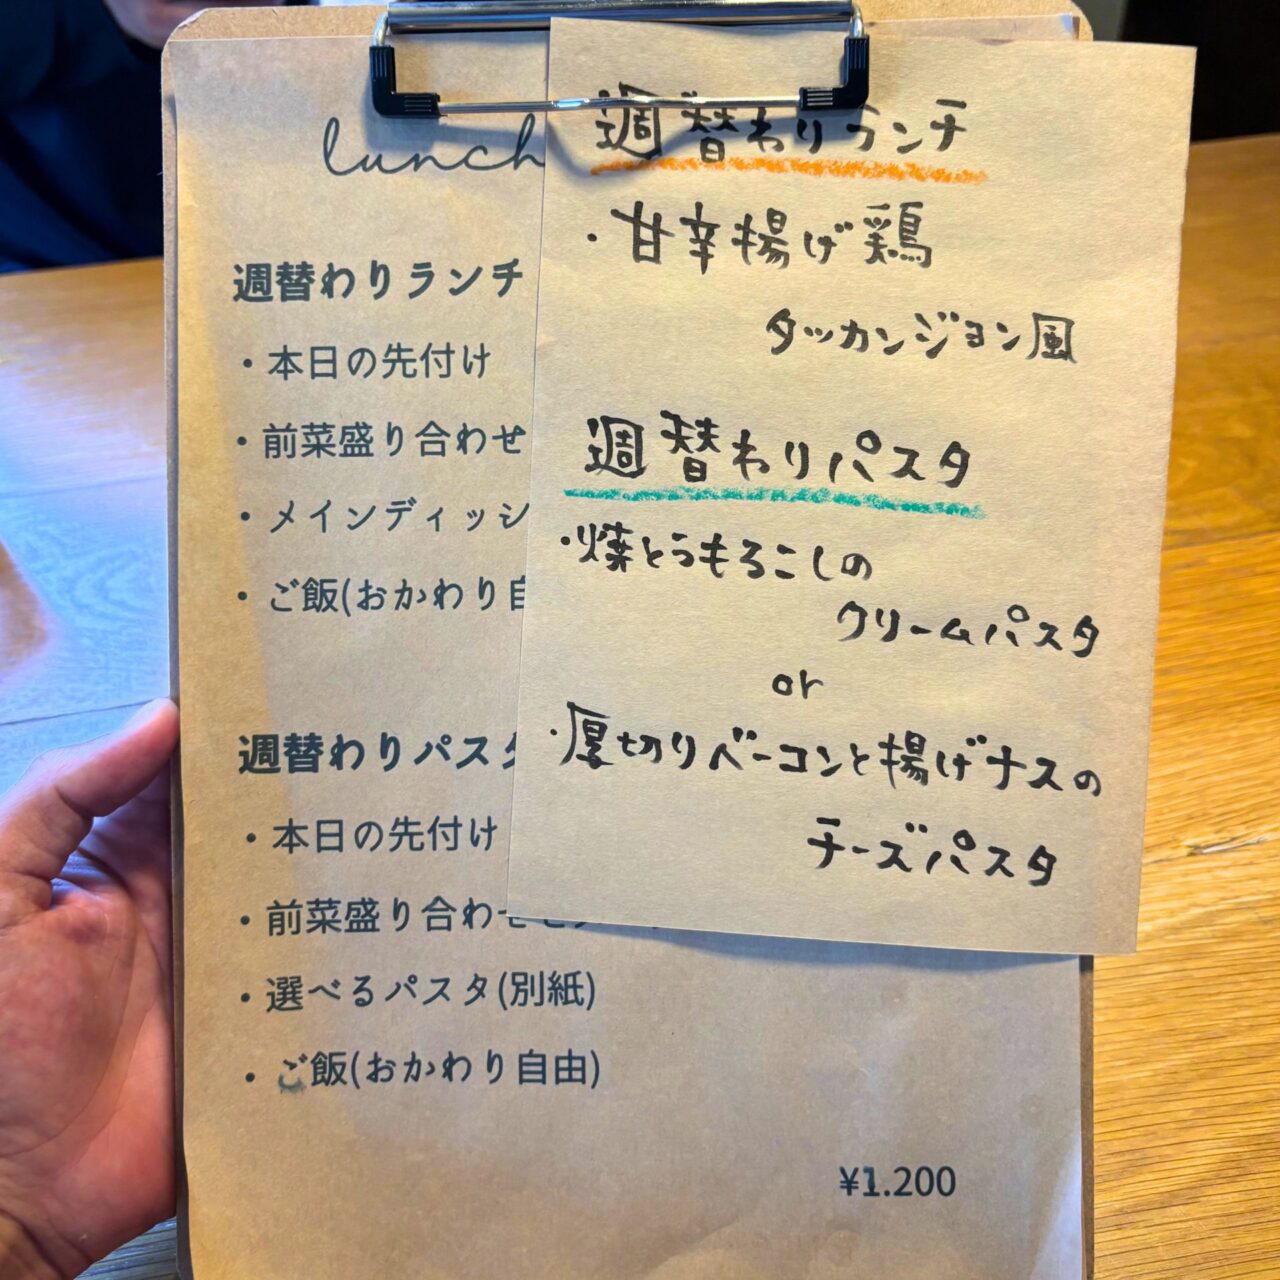 lunch
週替わりランチ
・本日の先付け
・前菜盛り合わせ
・メインディッシ
・ご飯(おかわり自
週替わりパスタ
・本日の先付け
・前菜盛り合わせ
・選べるパスタ(別紙)
・ご飯(おかわり自由)
¥1.200
週替わりランチ
・甘辛揚げ鶏
タッカンジョン風
週替わりパスタ
・焼とうもろこしの
クリームパスタ
or
・厚切りベーコンと揚げナスの
チーズパスタ